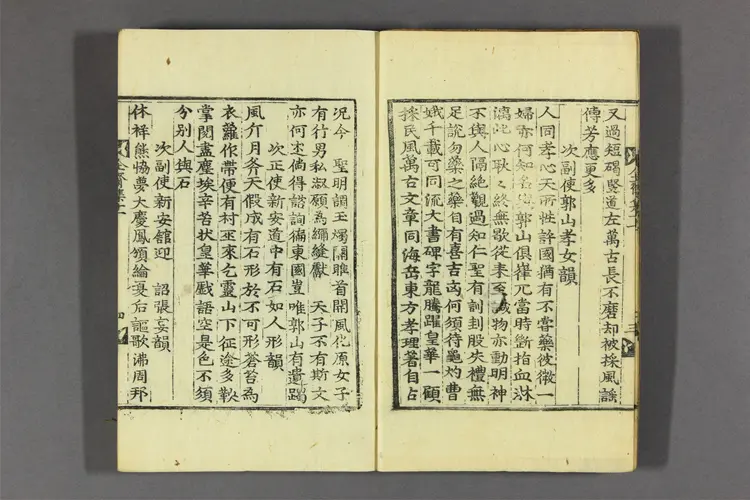 又過短碣竪道左萬古長不磨却被採風謠
傳芳應更多
次副使郭山孝女韻
人同孝心天所性許國猶有不嘗藥彼微一
婦亦何知 郭山俱癯兀當時斷指血淋
漓此心耿耿終無歇從来至誠物亦動明神
不與人隔絶觀過知仁聖有訓刲股失禮無
足說勿藥之藥自有喜吉凶何須待龜灼曹
娥千載可同流大書碑字龍騰躍皇華一顧
採民風萬古文章同海岳東方孝理著自占
况今 聖明調玉燭關雎首開風化原女子
有行男私淑願爲補縫獻 天子不有斯文
亦何述倘得諮詢徧東國豈唯郭山有遺躅
次正使新安道中有石如人形韻
風斤月斧天假成有石形於不可形蒼苔爲
衣蘿作帶便有村巫來乞靈山下征途多鞅
掌閱盡塵埃辛苦狀皇華戲語空是色不須
分別人與石
次副使新安館迎 詔張宴韻
休祥熊協夢大慶鳳頒綸戛后謳歌沸周邦